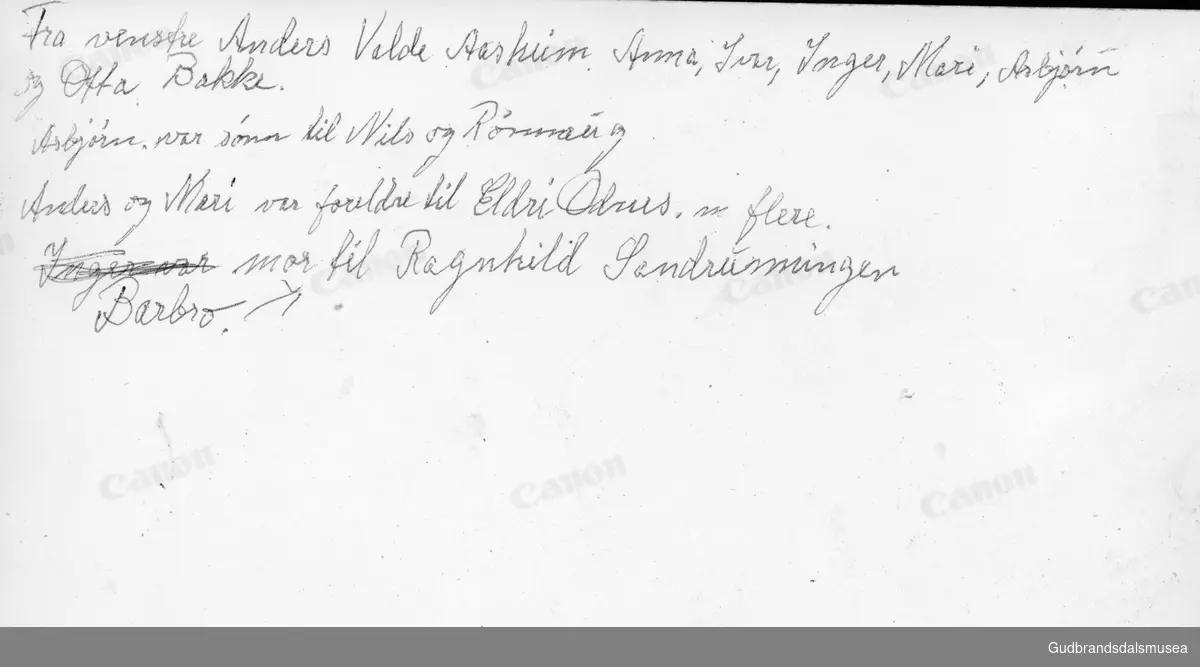 Fra venstre Anders Valde Aasheim. Anna, Ivar, Inger, Mari, Asbjörn
og Ofta Bakke.
Asbjörn. var sönn til Nils og Rönnaug
Anders og Mari var foreldre til Eldri Ödnes. m flere.
Inger var mor til Ragnhild Sandrumingen
Barbro.
Canon
Canon
Canon
Canon
Canon
Canon
Gudbrandsdalsmusea